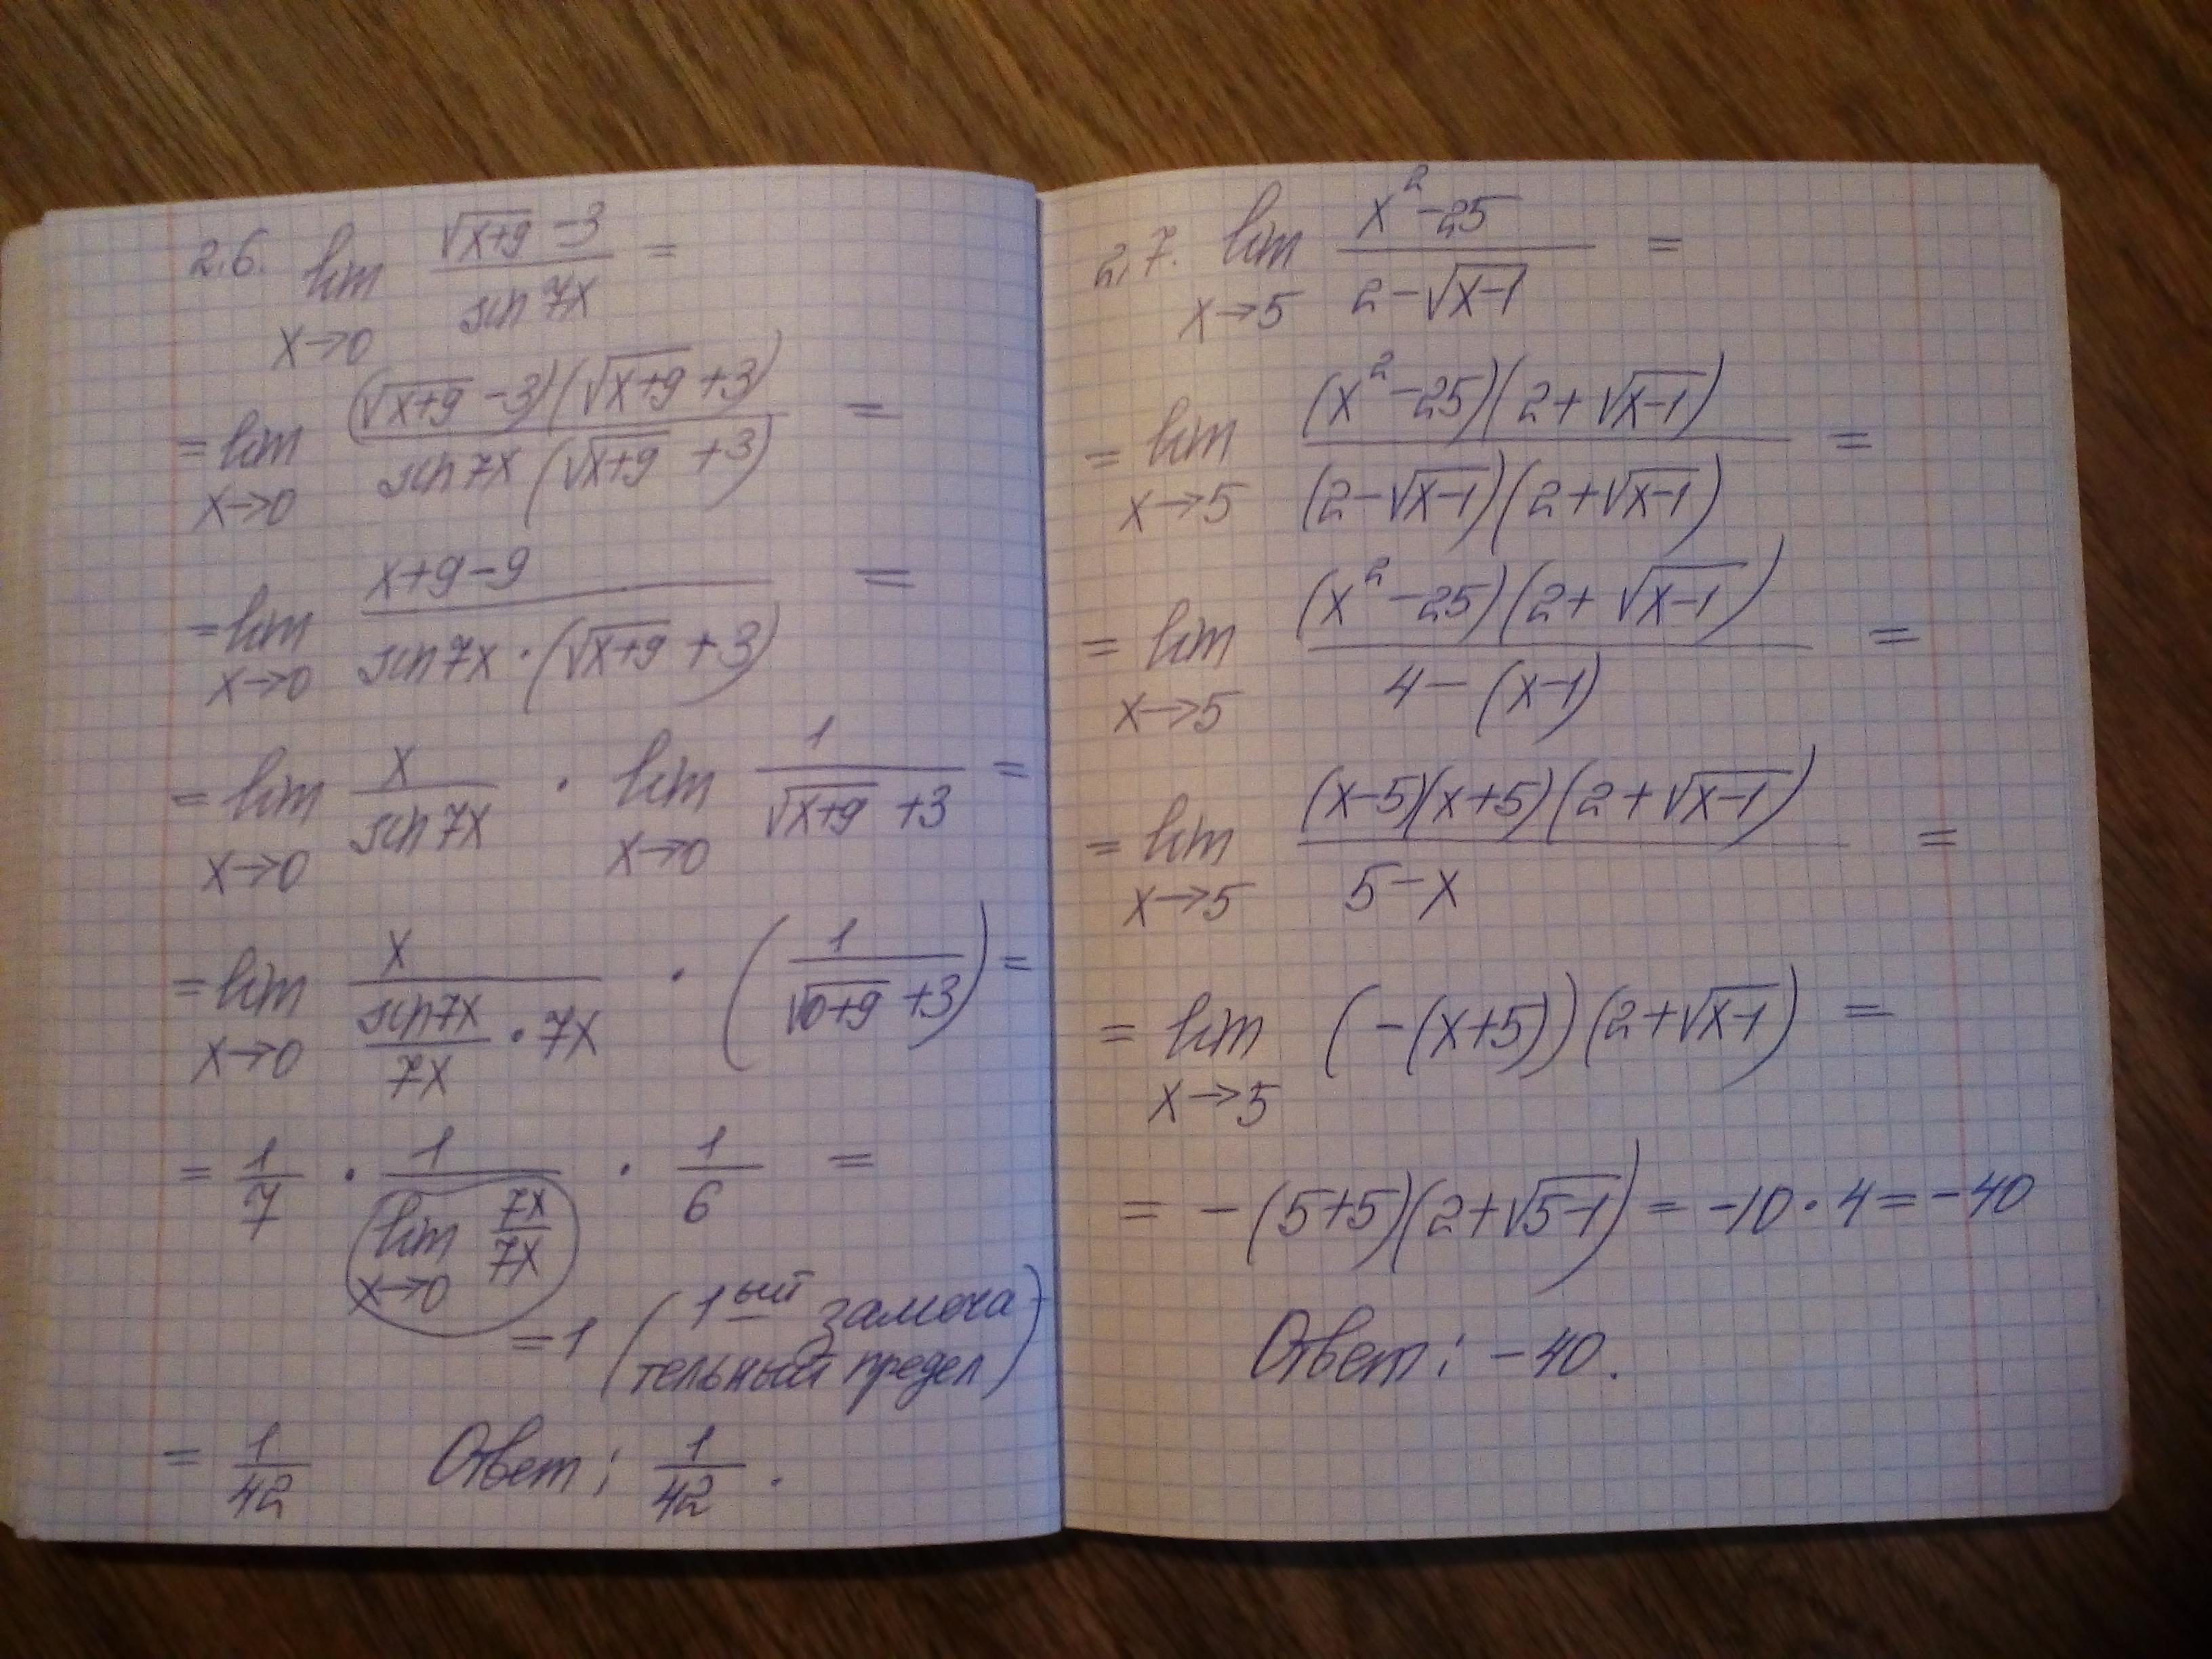 2.6. lim x→0 (√(x+9) −3)/(sin 7x) =
= lim x→0 ((√(x+9) −3)(√(x+9) +3))/(sin 7x (√(x+9) +3)) =
= lim x→0 (x+9−9)/(sin 7x · (√(x+9) +3)) =
= lim x→0 x/(sin 7x) · lim x→0 1/(√(x+9) +3) =
= lim x→0 x/((sin 7x)/(7x) · 7x) · (1/(√(0+9) +3)) =
= 1/7 · 1/(lim x→0 7x/7x) · 1/6 =
=1 (1ый замеча-
тельный предел)
= 1/42 Ответ: 1/42.
2.7. lim x→5 (x²−25)/(2−√(x−1)) =
= lim x→5 ((x²−25)(2+√(x−1)))/((2−√(x−1))(2+√(x−1))) =
= lim x→5 ((x²−25)(2+√(x−1)))/(4−(x−1)) =
= lim x→5 ((x−5)(x+5)(2+√(x−1)))/(5−x) =
= lim x→5 (−(x+5))(2+√(x−1)) =
= −(5+5)(2+√(5−1)) = −10·4 = −40
Ответ: −40.